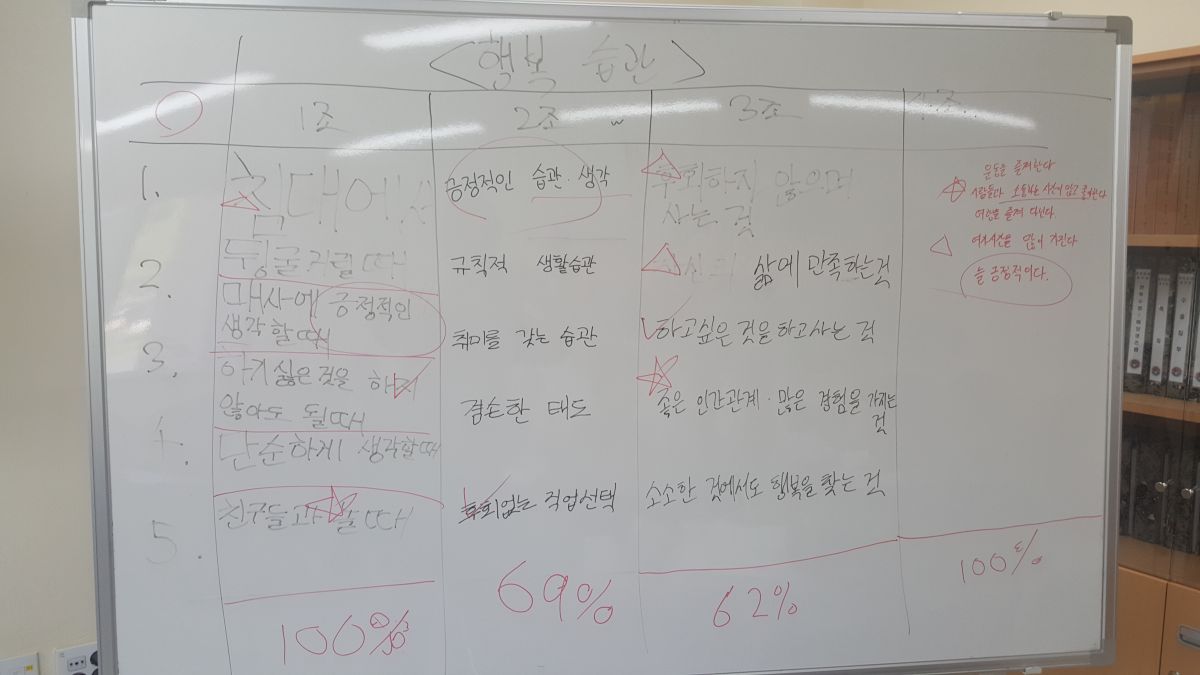 <행복 습관>
1조 2조 3조 4조
1.
침대에서
뒹굴거릴때
2.
매사에 긍정적인
생각할때
3.
하기 싫은 것을 하지
않아도 될때
4.
단순하게 생각할때
친구들과 놀때
5.
100%
긍정적인 습관·생각
규칙적 생활습관
취미를 갖는 습관
겸손한 태도
후회없는 직업선택
69%
후회하지 않으며
사는 것
삶에 만족하는것
하고싶은 것을 하고사는 것
좋은 인간관계·많은 경험을 가지는
것
소소한 것에서도 행복을 찾는 것
62%
운동을 즐겨한다
사람들과
여행을 즐겨 다닌다
여가시간을 많이 가진다
늘 긍정적이다.
100%